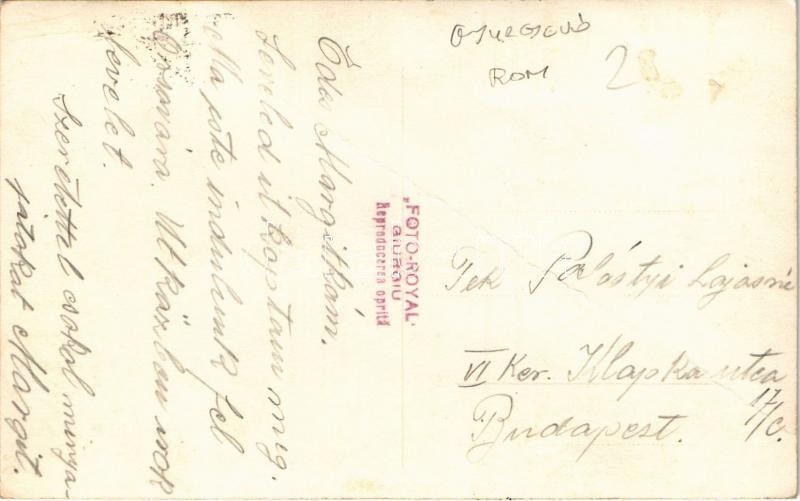 Óda Margitkám.
Leveled itt kaptam míg.
Ma este indulunk fel
Orsovára. Útközben irok
levelet.
Szeretettel csokol minyá-
jatokat Margit.
"FOTO-ROYAL"
GIURGIU
Reproducerea oprită
ROM
2
Tek Palástyi Lajosné
VI Ker. Klapka utca
17/c.
Budapest.